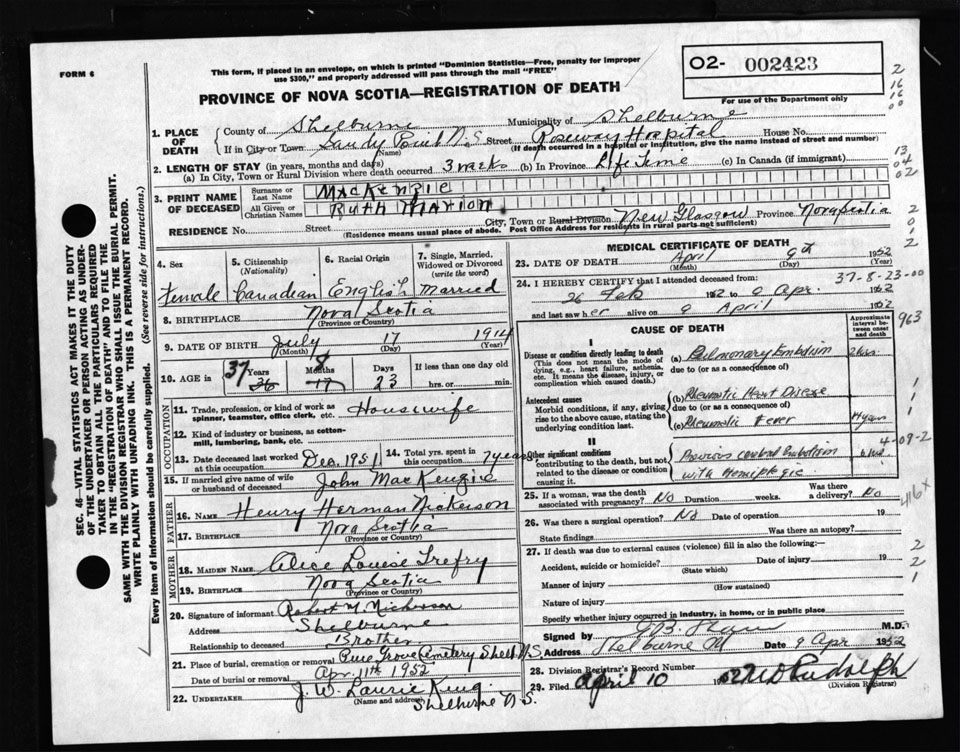 FORM 6
This form, if placed in an envelope, on which is printed "Dominion Statistics—Free, penalty for improper
use $300," and properly addressed will pass through the mail "FREE"
O2- 002423
For use of the Department only
PROVINCE OF NOVA SCOTIA—REGISTRATION OF DEATH
1. PLACE OF DEATH
County of Shelburne Municipality of Shelburne
If in City or Town Sandy Point N.S. Street Roseway Hospital House No.
(Name) (If death occurred in a hospital or institution, give the name instead of street and number)
2. LENGTH OF STAY (in years, months and days)
(a) In City, Town or Rural Division where death occurred 3 weeks (b) In Province Life Time (c) In Canada (if immigrant)
3. PRINT NAME OF DECEASED
Surname or Last Name MacKenzie
All Given or Christian Names Ruth Marion
RESIDENCE No. Street City, Town or Rural Division New Glasgow Province Nova Scotia
(Residence means usual place of abode. Post Office Address for residents in rural parts not sufficient)
4. Sex Female
5. Citizenship (Nationality) Canadian
6. Racial Origin English
7. Single, Married, Widowed or Divorced (write the word) Married
8. BIRTHPLACE Nova Scotia
(Province or Country)
9. DATE OF BIRTH July 17 1914
(Month) (Day) (Year)
10. AGE in 37 Years 36 8 Months 17 Days 23 If less than one day old hrs. or min.
OCCUPATION
11. Trade, profession, or kind of work as spinner, teamster, office clerk, etc. Housewife
12. Kind of industry or business, as cotton-mill, lumbering, bank, etc.
13. Date deceased last worked at this occupation Dec. 1951
14. Total yrs. spent in this occupation 7 years
15. If married give name of wife or husband of deceased John MacKenzie
FATHER
16. NAME Henry Herman Nickerson
17. BIRTHPLACE Nova Scotia
(Province or Country)
MOTHER
18. MAIDEN NAME Alice Louise Trefry
19. BIRTHPLACE Nova Scotia
(Province or Country)
20. Signature of informant Robert M. Nickerson
Address Shelburne
Relationship to deceased Brother
21. Place of burial, cremation or removal Pine Grove Cemetery Shelb N.S.
Date of burial or removal Apr. 11th 1952
22. UNDERTAKER J. W. Laurie King
(Name and address) Shelburne N.S.
MEDICAL CERTIFICATE OF DEATH
23. DATE OF DEATH April 9th 1952
(Month) (Day) (Year)
37-8-23-00
24. I HEREBY CERTIFY that I attended deceased from:
26 Feb 1952 to 9 Apr. 1952
and last saw her alive on 9 April 1952
CAUSE OF DEATH
Approximate interval between onset and death
963
I
Disease or condition directly leading to death (a) Pulmonary Embolism
(This does not mean the mode of dying, e.g., heart failure, asthenia, etc. It means the disease, injury, or complication which caused death.)
due to (or as a consequence of)
Antecedent causes (b) Rheumatic Heart Disease
Morbid conditions, if any, giving rise to the above cause, stating the underlying condition last.
due to (or as a consequence of)
(c) Rheumatic Fever
II
4-09-2
Other significant conditions contributing to the death, but not related to the disease or condition causing it.
Previous cerebral Embolism
with Hemiplegia
416x
25. If a woman, was the death associated with pregnancy? No Duration weeks. Was there a delivery? No
26. Was there a surgical operation? No Date of operation 19
State findings Was there an autopsy?
27. If death was due to external causes (violence) fill in also the following:—
Accident, suicide or homicide? Date of injury 19
(State which)
Manner of injury
(How sustained)
Nature of injury
Specify whether injury occurred in industry, in home, or in public place
Signed by M.D.
Address Shelburne Date 9 Apr 1952
28. Division Registrar's Record Number
29. Filed April 10 1952
(Division Registrar)
SEC. 46—VITAL STATISTICS ACT MAKES IT THE DUTY
OF THE UNDERTAKER OR PERSON ACTING AS UNDER-
TAKER TO OBTAIN ALL THE PARTICULARS REQUIRED
IN THE "REGISTRATION OF DEATH" AND TO FILE THE
SAME WITH THE DIVISION REGISTRAR WHO SHALL ISSUE THE BURIAL PERMIT.
WRITE PLAINLY WITH UNFADING INK. THIS IS A PERMANENT RECORD.
Every item of information should be carefully supplied. (See reverse side for instructions.)